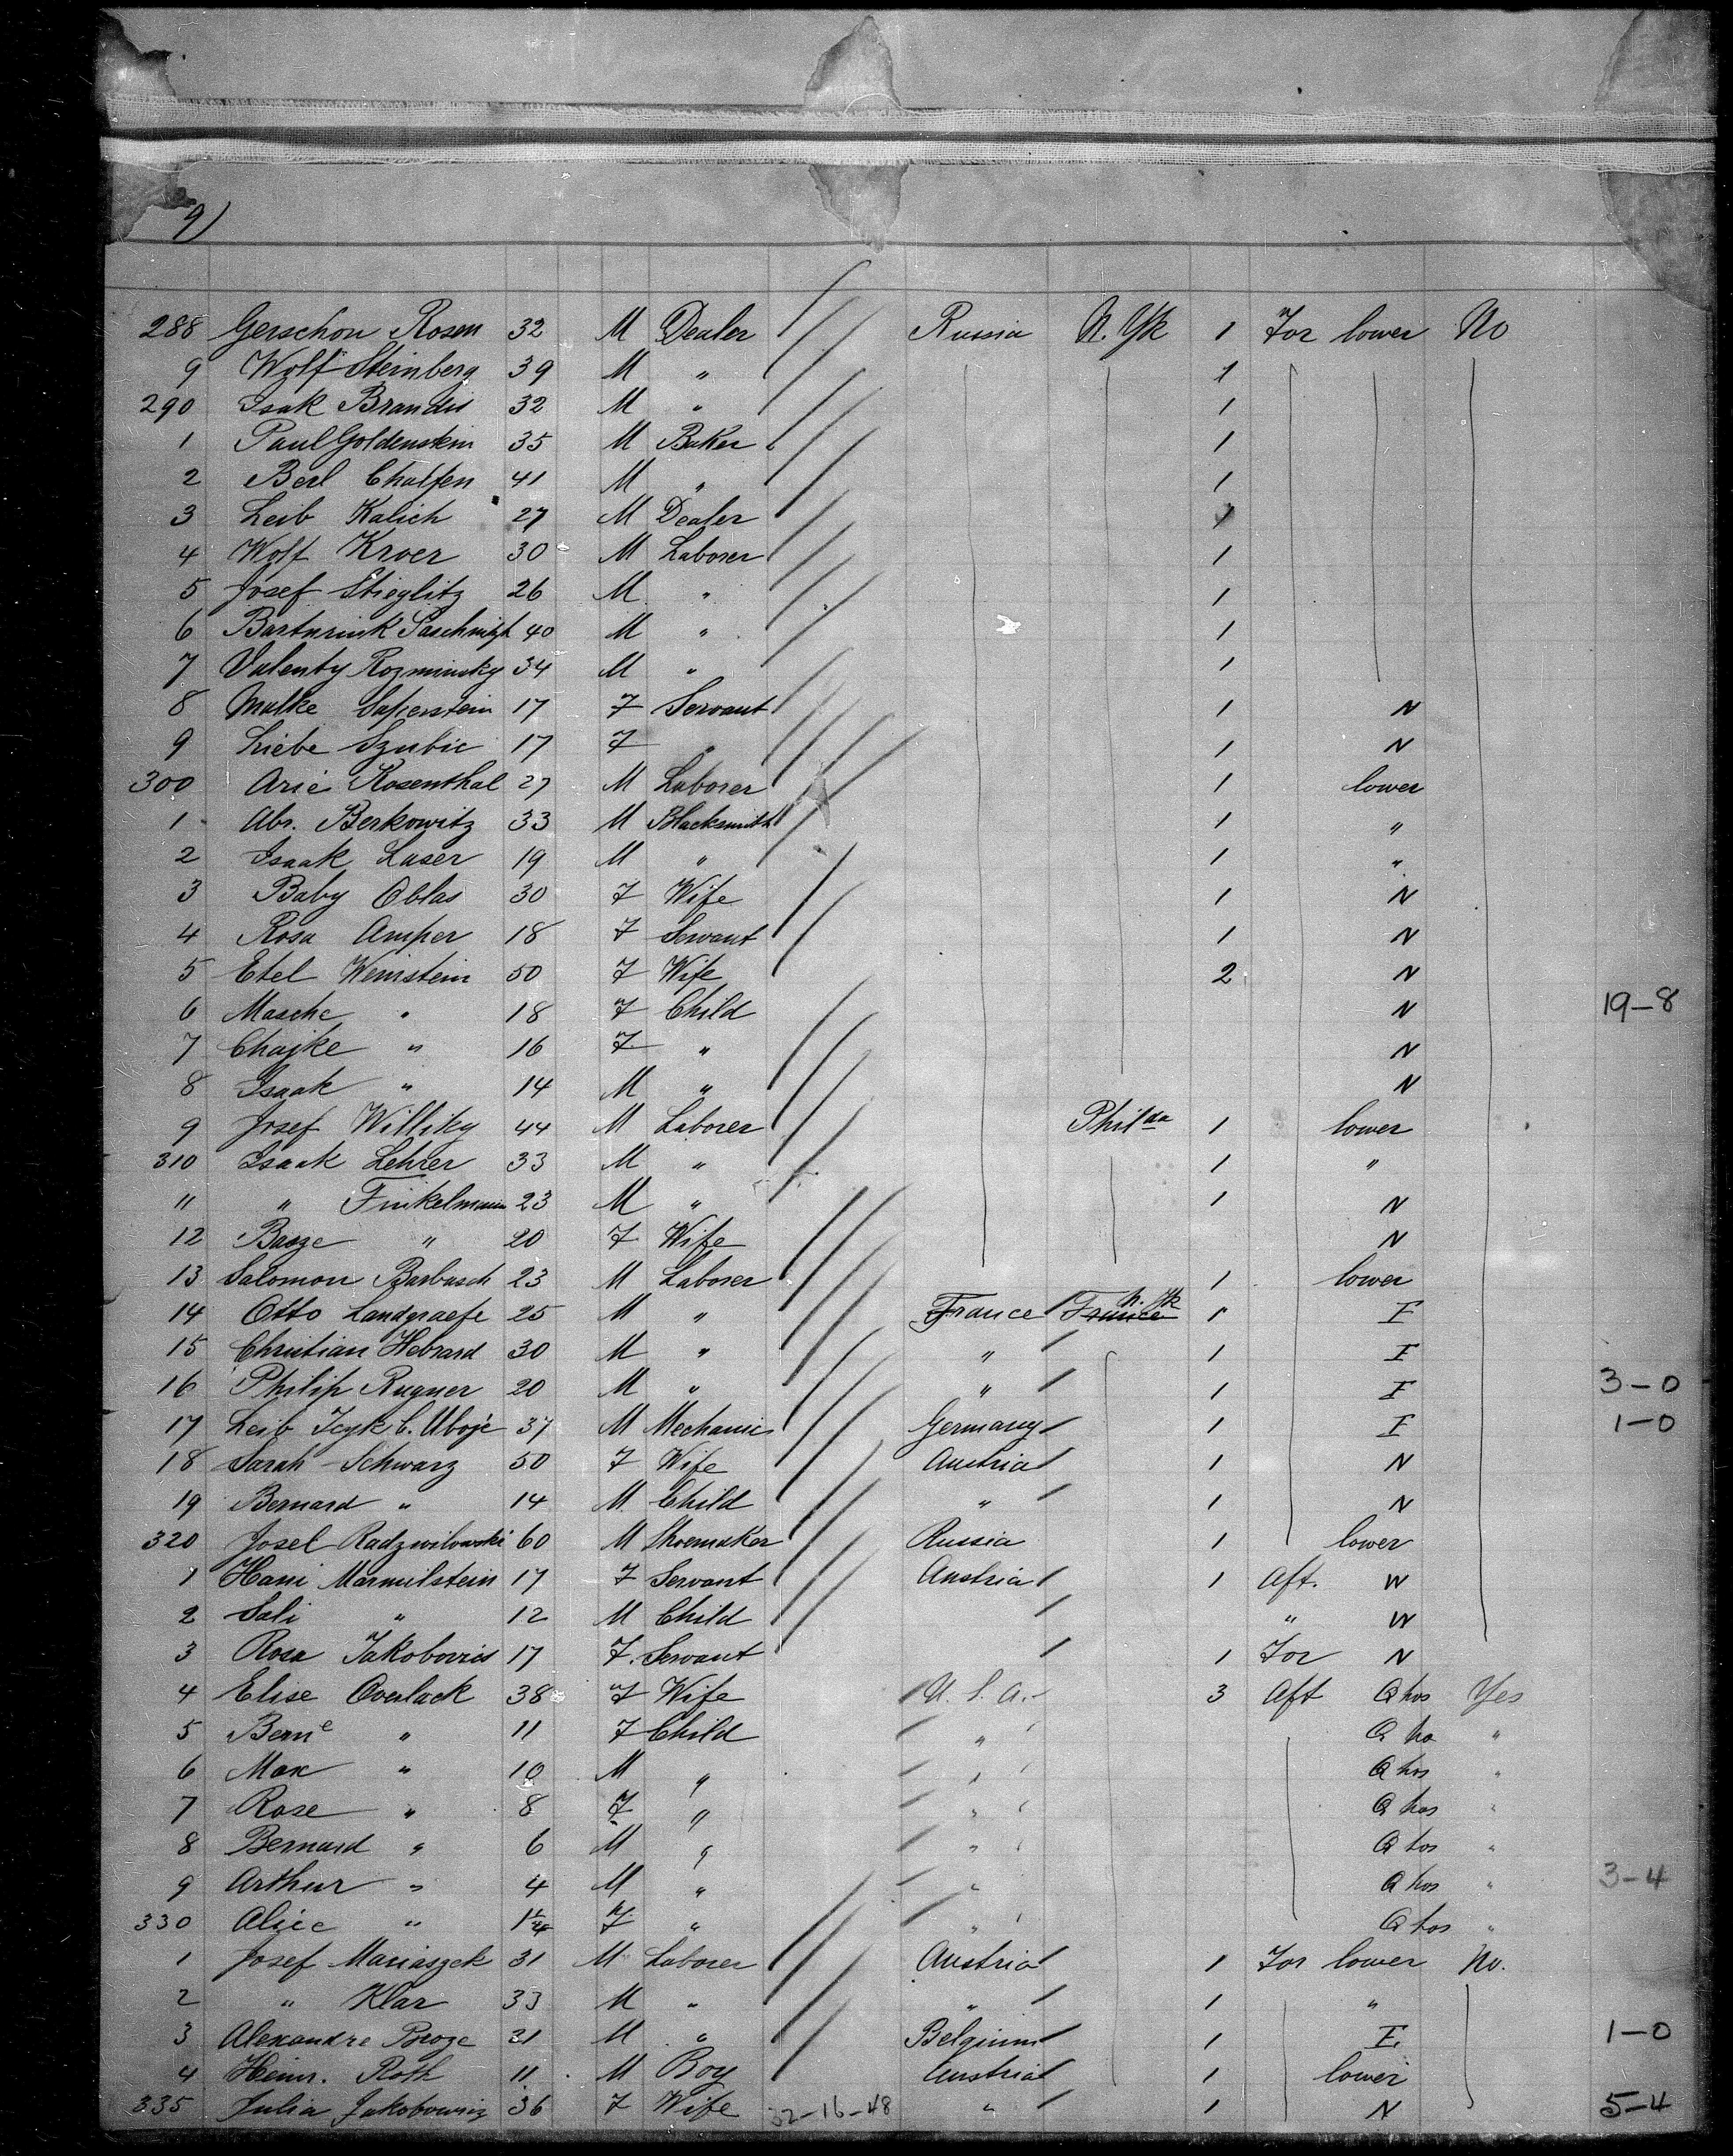 9)
288 Gerschon Rosen 32 M Dealer Russia N. Yk 1 For lower No
9 Wolf Steinberg 39 M " 1
290 Isak Brandis 32 M " 1
1 Paul Goldenstein 35 M Baker 1
2 Berl Chalfen 41 M " 1
3 Leib Kalich 27 M Dealer 1
4 Wolf Kroer 30 M Laborer 1
5 Josef Stieglitz 26 M " 1
6 40 M " 1
7 Valenty Rozminsky 34 M " 1
8 Malke Saperstein 17 F Servant 1 N
9 Liebe Szubic 17 F " 1 N
300 Arie Rosenthal 27 M Laborer 1 lower
1 Abr. Berkowitz 33 M Blacksmith 1 "
2 Isaak Laser 19 M " 1 "
3 Baby Oblas 30 F Wife 1 N
4 Rosa Amper 18 F Servant 1 N
5 Etel Weinstein 50 F Wife 2 N
6 Masche " 18 F Child N 19-8
7 Chajke " 16 F " N
8 Isaak " 14 M " N
9 Josef Williky 44 M Laborer Philda 1 lower
310 Isaak Lehrer 33 M " 1 "
11 " Finkelmann 23 M " 1 N
12 " 20 F Wife N
13 Salomon Barbasch 23 M Laborer 1 lower
14 Otto Landgraefe 25 M " France France N. Yk 1 I
15 Christian Hebrard 30 M " " 1 I
16 Philip Rugner 20 M " " 1 I 3-0
17 Leib Icyk 37 M Mechanic Germany 1 I 1-0
18 Sarah Schwarz 50 F Wife Austria 1 N
19 Bernard " 14 M Child " 1 N
320 Josel Radzwilowski 60 M Shoemaker Russia 1 lower
1 Hani Marmilstein 17 F Servant Austria 1 Aft. W
2 Sali " 12 M Child " W
3 Rosa Jakobovics 17 F. Servant 1 For N
4 Elise Overlack 38 F Wife U. S. A. 3 Aft Q hos Yes
5 " 11 F Child " Q ho "
6 Max " 10 M " " Q hos "
7 Rose " 8 F " " Q hos "
8 Bernard " 6 M " " Q hos "
9 Arthur " 4 M " " Q hos " 3-4
330 Alice " F " " Q hos "
1 Josef Maciaszek 31 M Laborer Austria 1 For lower No.
2 " Klar 33 M " " 1 "
3 Alexandre Broze 31 M " Belgium 1 I 1-0
4 Heinr. Roth 11 M Boy Austria 1 lower
335 Julia Jakobowicz 36 F Wife 32-16-48 " 1 N 5-4